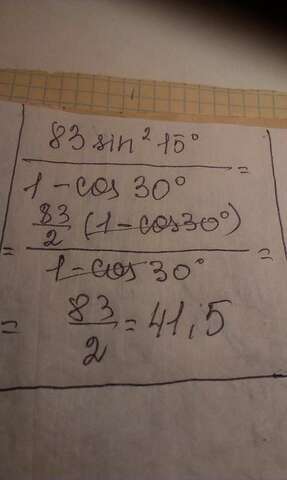 83 sin² 15°
1 - cos 30° =
= 83/2 (1 - cos 30°)
1 - cos 30° =
= 83/2 = 41,5